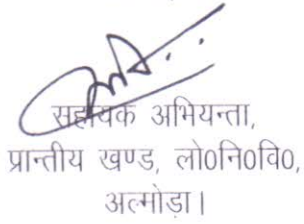 सहायक अभियन्ता,
प्रान्तीय खण्ड, लो0नि0वि0,
अल्मोड़ा।